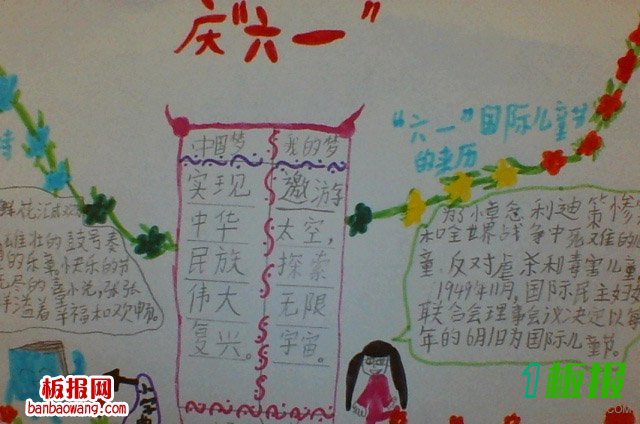 庆“六一”
“六一”国际儿童节
的来历
中国梦
实现
中华
民族
伟大
复兴。
我的梦
遨游
太空,
探索
无限
宇宙。
鼓号奏
的乐章,快乐的节
幸福和欢畅。
为悼念利迪策惨
和全世界战争中死难的
童,反对虐杀和毒害儿童
1949年11月,国际民主妇
联合会理事会议决定以每
年的6月1日为国际儿童节。
板报网
banbaowang.com
1板报